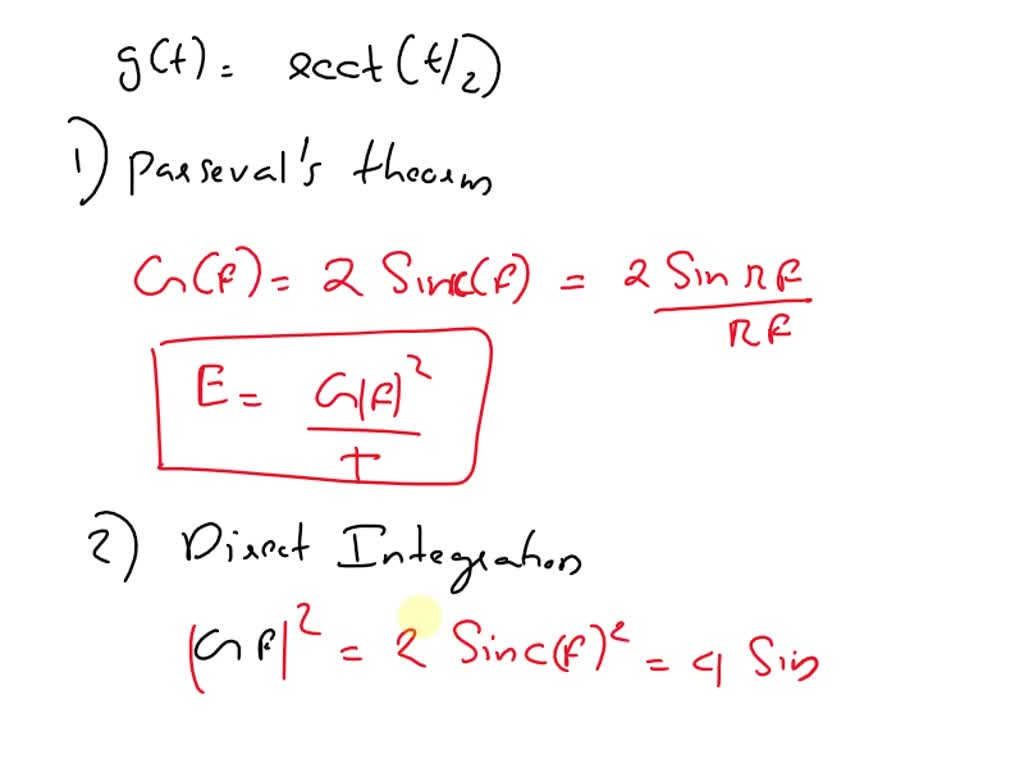 g(t) = rect(t/2)
1) Parseval's theorem
G(f) = 2 Sinc(f) = 2 Sin πf / πf
E = G(f)² / T
2) Direct Integration
|G f|² = 2 Sinc(f)² = 4 Sin